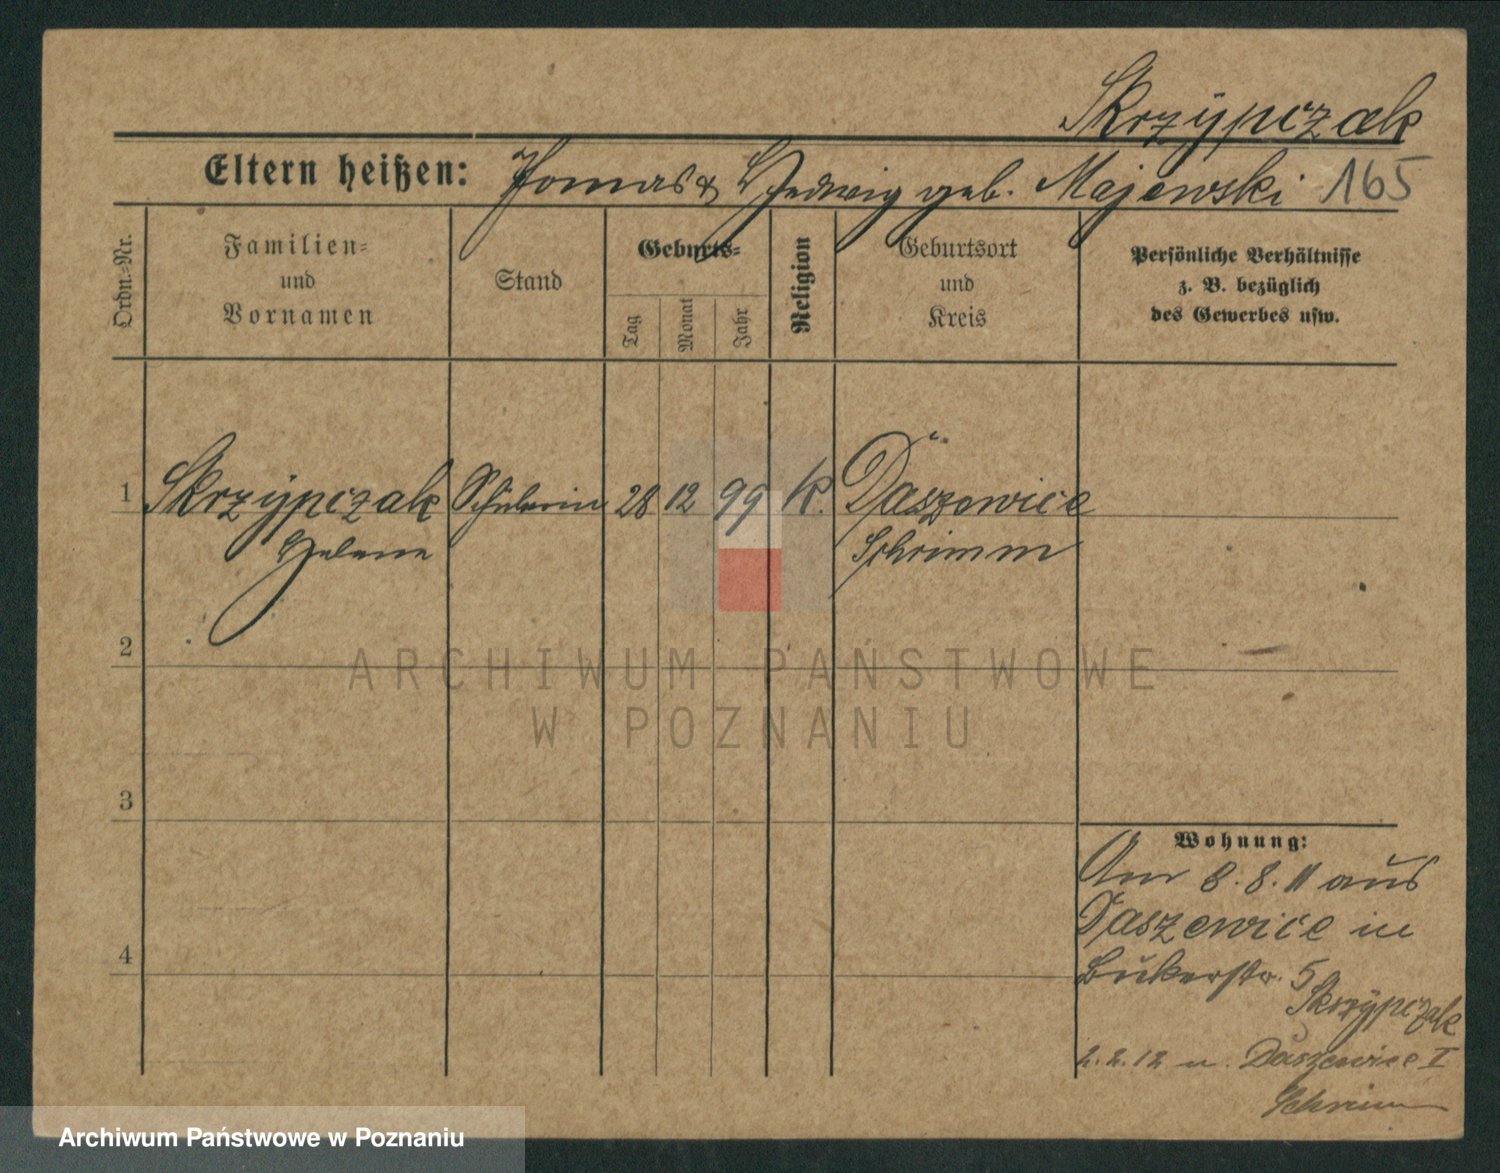 Skrzypczak
Eltern heißen: Tomas & Hedwig geb. Majewski 165
Ordn.=Nr.
Familien=
und
Vornamen
Stand
Geburts=
Tag
Monat
Jahr
Religion
Geburtsort
und
Kreis
Persönliche Verhältnisse
z. B. bezüglich
des Gewerbes usw.
1 Skrzypczak Schülerin 28 12 99 K. Daszewice
Helene Schrimm
2
ARCHIWUM PAŃSTWOWE
W POZNANIU
3
Wohnung:
Am 8.8.11 aus
Daszewice in
Bukerstr. 5
Skrzypczak
4
2.2.12 n. Daszewice I
Schrimm
Archiwum Państwowe w Poznaniu